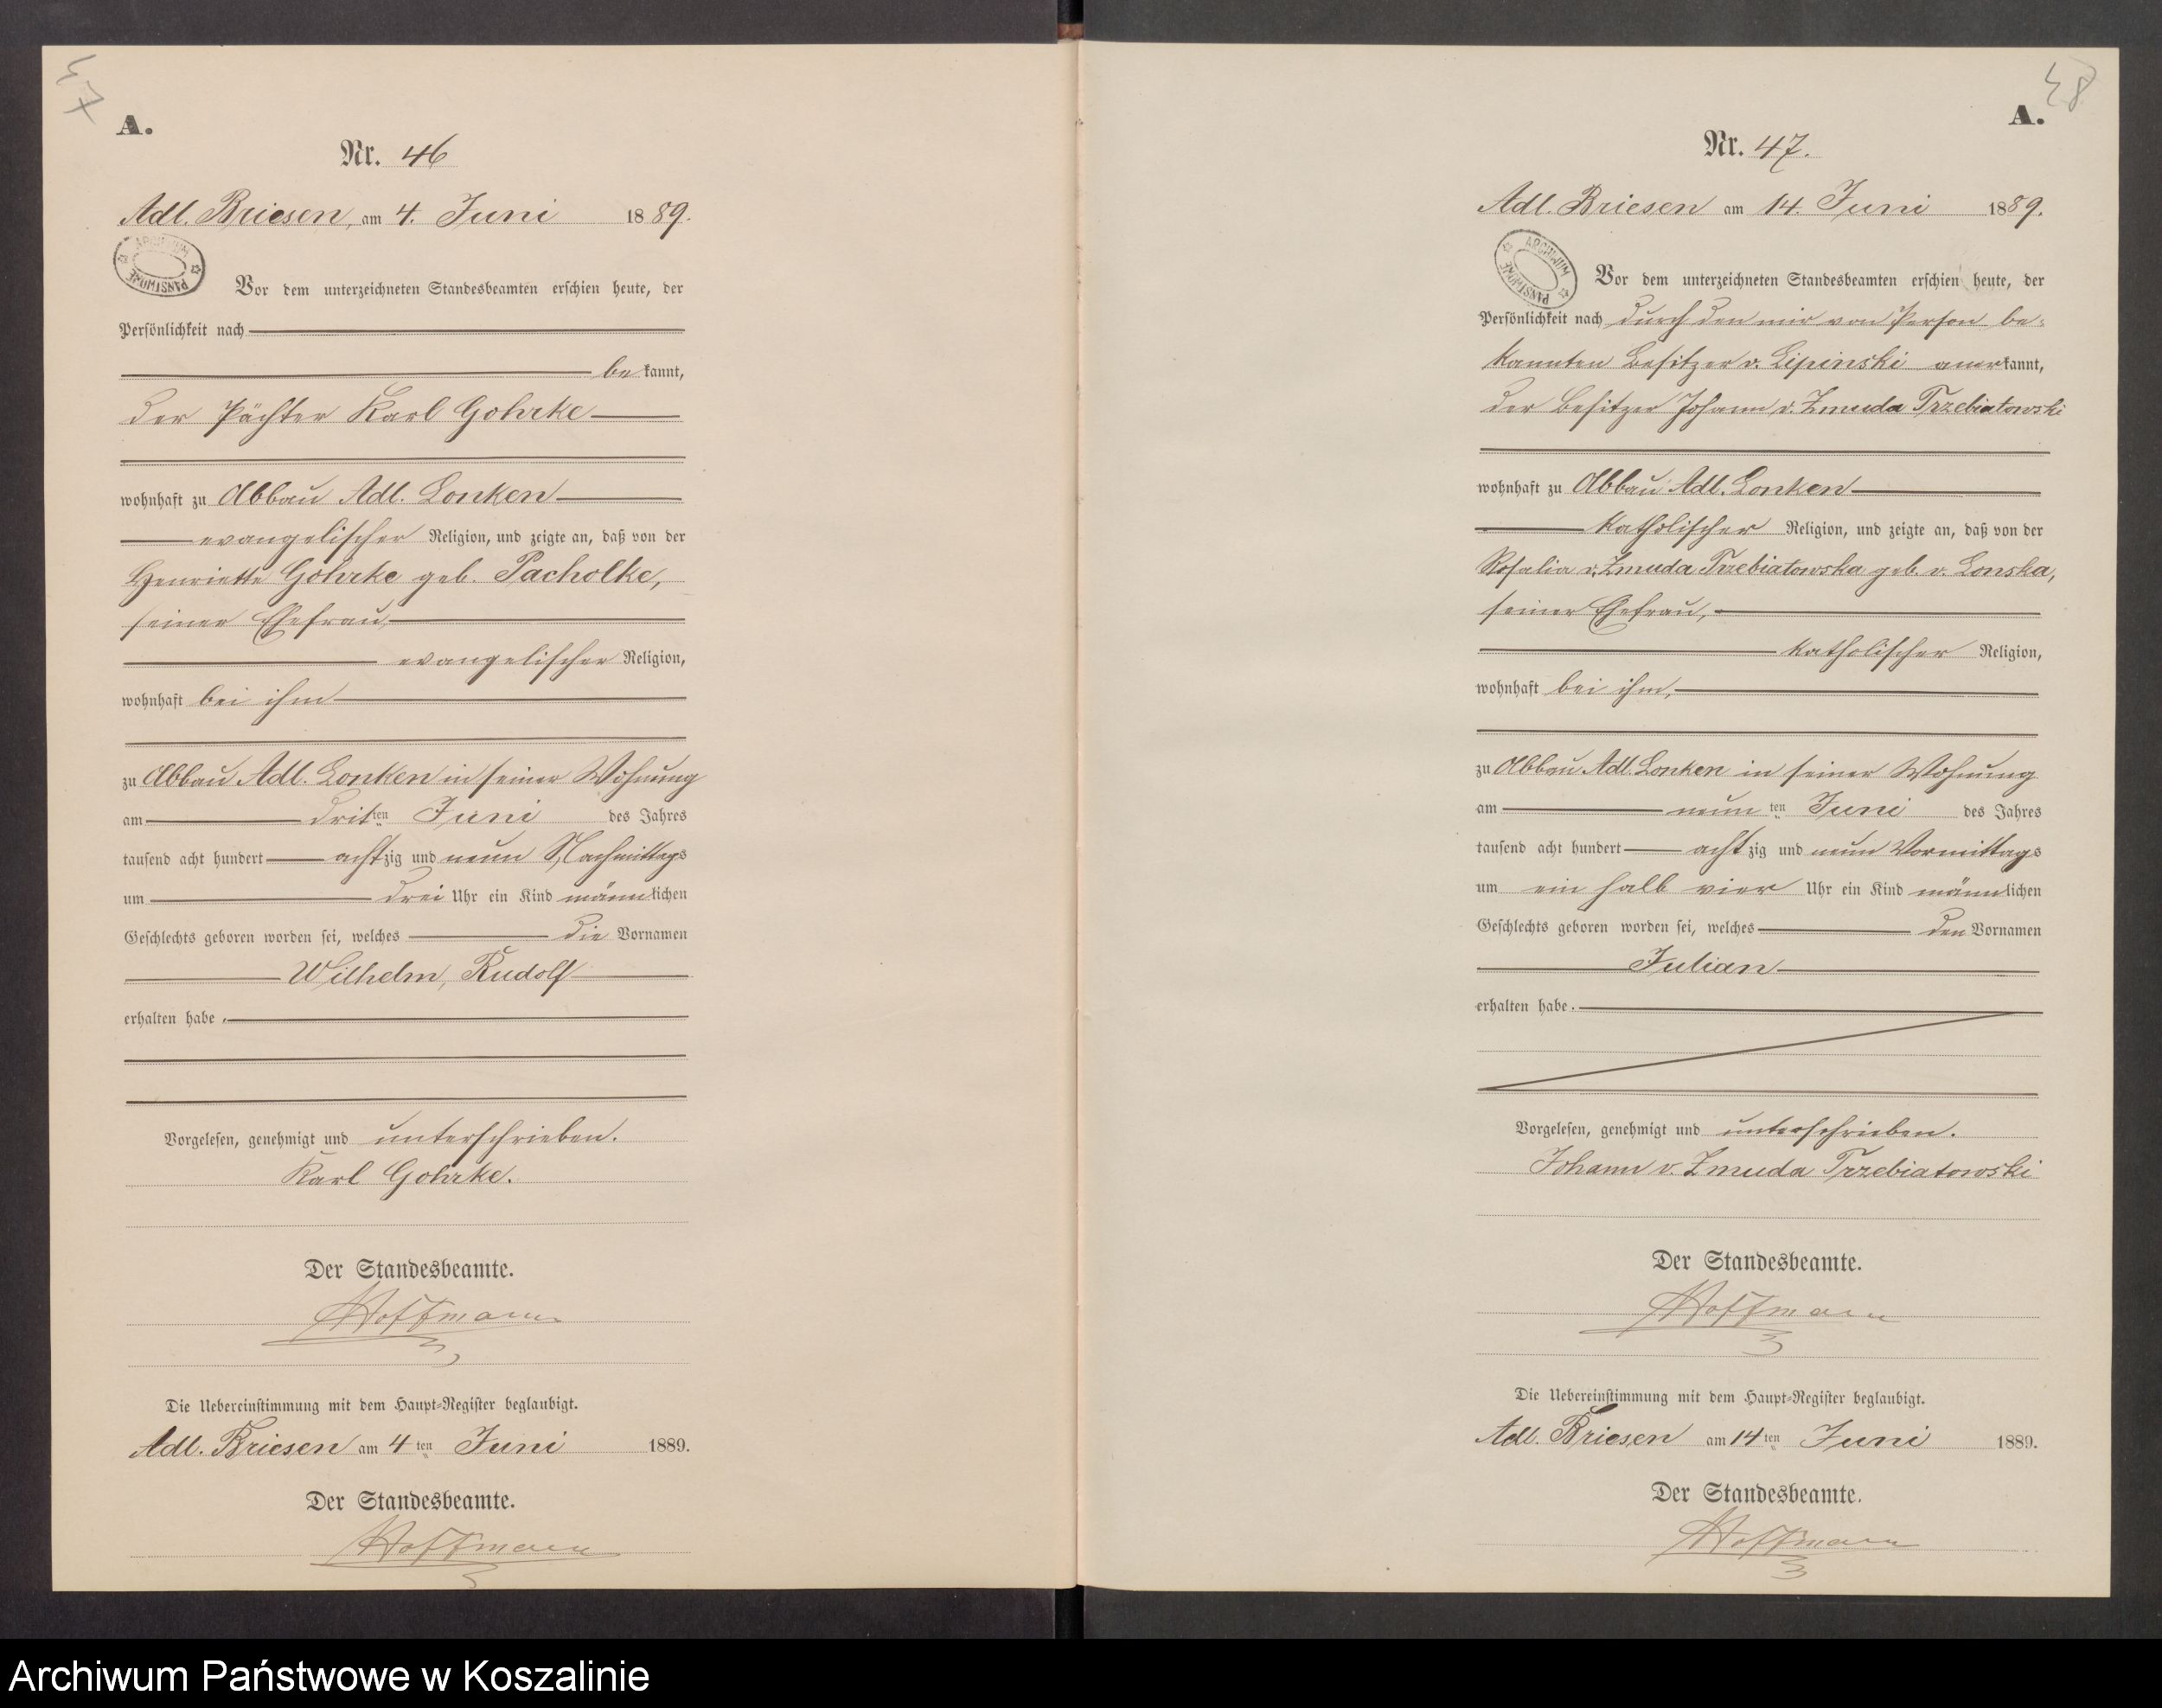 47
A.
Nr. 46
Adl. Briesen, am 4. Juni 1889.
ARCHIWUM PAŃSTWOWE
Vor dem unterzeichneten Standesbeamten erschien heute, der
Persönlichkeit nach
bekannt,
der Pächter Karl Gohrke
wohnhaft zu Abbau Adl. Lonken
evangelischer Religion, und zeigte an, daß von der
Henriette Gohrke geb. Pacholke,
seiner Ehefrau,
evangelischer Religion,
wohnhaft bei ihm
zu Abbau Adl. Lonken in seiner Wohnung
am dritten Juni des Jahres
tausend acht hundert achtzig und neun Nachmittags
um drei Uhr ein Kind männlichen
Geschlechts geboren worden sei, welches die Vornamen
Wilhelm, Rudolf
erhalten habe.
Vorgelesen, genehmigt und unterschrieben.
Karl Gohrke.
Der Standesbeamte.
Hoffmann
Die Uebereinstimmung mit dem Haupt-Register beglaubigt.
Adl. Briesen am 4ten Juni 1889.
Der Standesbeamte.
Hoffmann
48
A.
Nr. 47.
Adl. Briesen am 14. Juni 1889.
ARCHIWUM PAŃSTWOWE
Vor dem unterzeichneten Standesbeamten erschien heute, der
Persönlichkeit nach durch den mir von Person be-
kannten Besitzer v. Lipinski anerkannt,
der Besitzer Johann v. Zmuda Trzebiatowski
wohnhaft zu Abbau Adl. Lonken
katholischer Religion, und zeigte an, daß von der
Rosalia v. Zmuda Trzebiatowska geb. v. Lonska,
seiner Ehefrau,
katholischer Religion,
wohnhaft bei ihm,
zu Abbau Adl. Lonken in seiner Wohnung
am neunten Juni des Jahres
tausend acht hundert achtzig und neun Vormittags
um ein halb vier Uhr ein Kind männlichen
Geschlechts geboren worden sei, welches den Vornamen
Julian
erhalten habe.
Vorgelesen, genehmigt und unterschrieben.
Johann v. Zmuda Trzebiatowski
Der Standesbeamte.
Hoffmann
Die Uebereinstimmung mit dem Haupt-Register beglaubigt.
Adl. Briesen am 14ten Juni 1889.
Der Standesbeamte.
Hoffmann
Archiwum Państwowe w Koszalinie